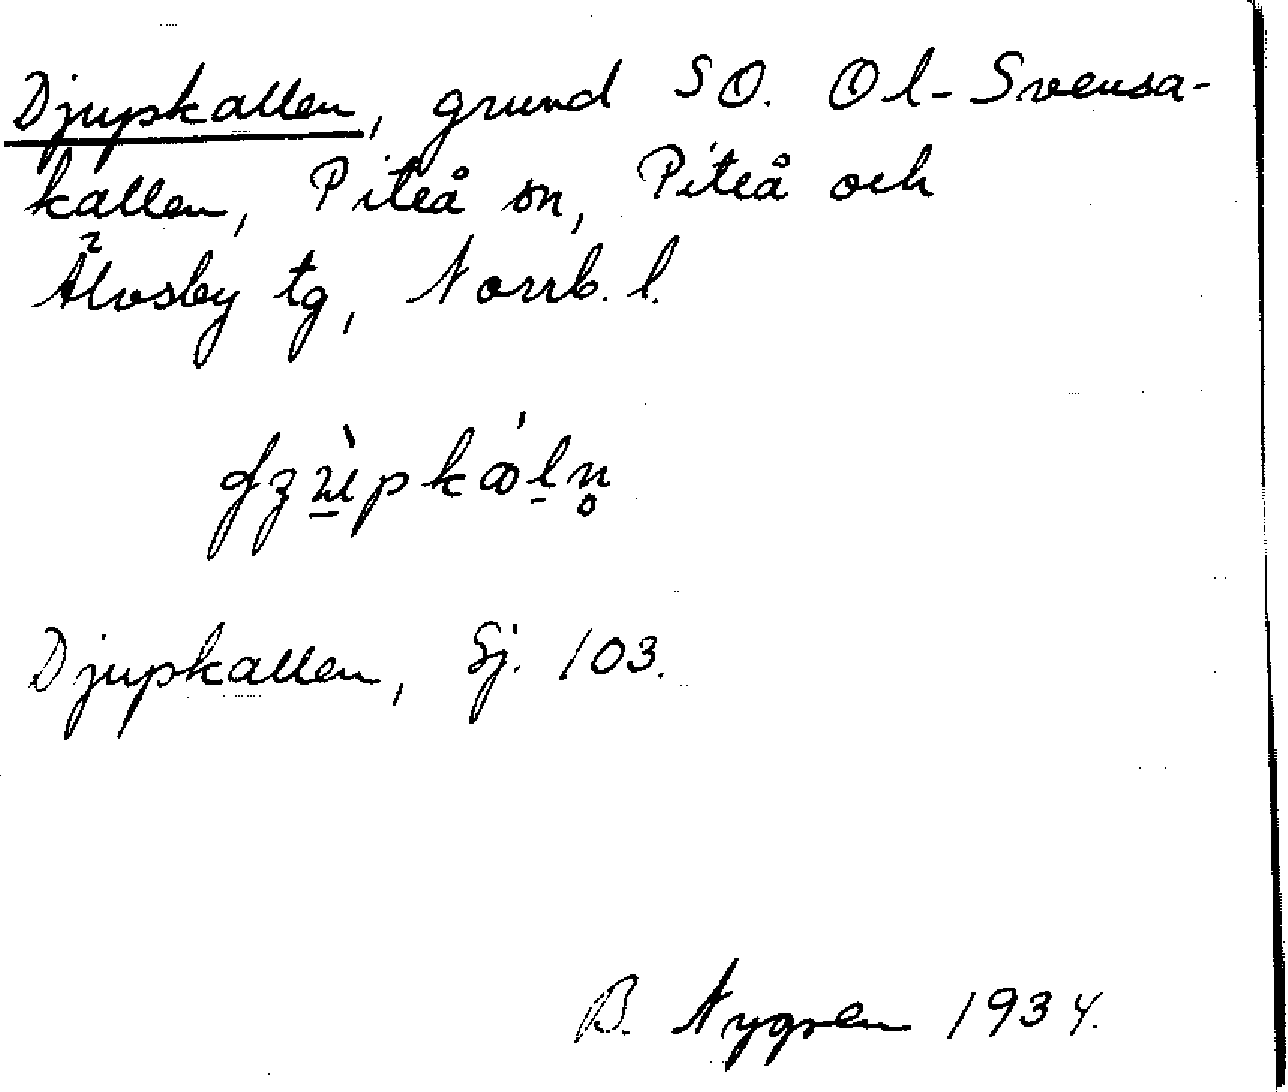 Djupkallen, grund SO. Ol-Svensa-
kallen, Piteå sn, Piteå och
Älvsby tg, Norrb. l.
Djupkallen, Sj. 103.
B. Nygren 1934.